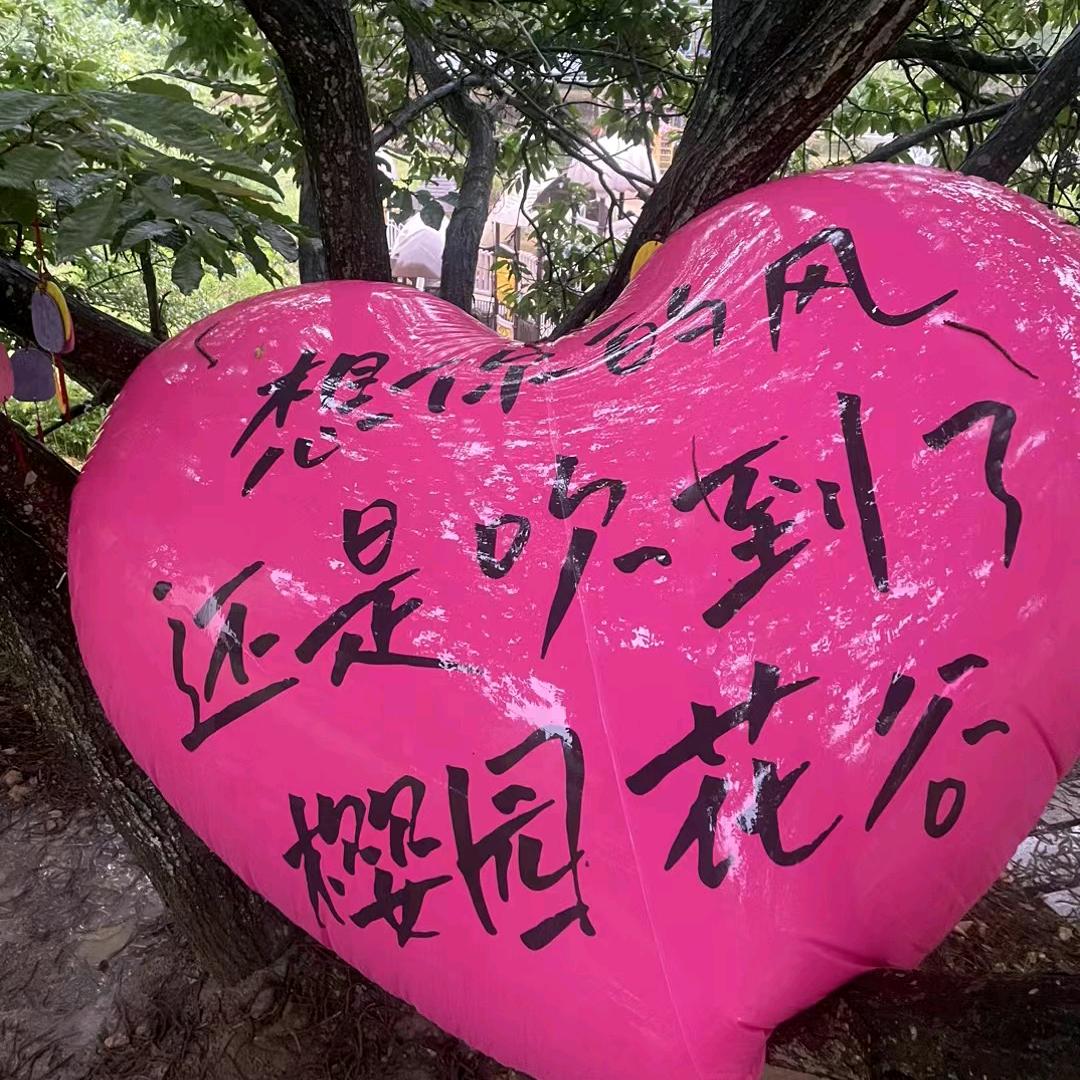 想你的风
还是吹到了
樱园花谷